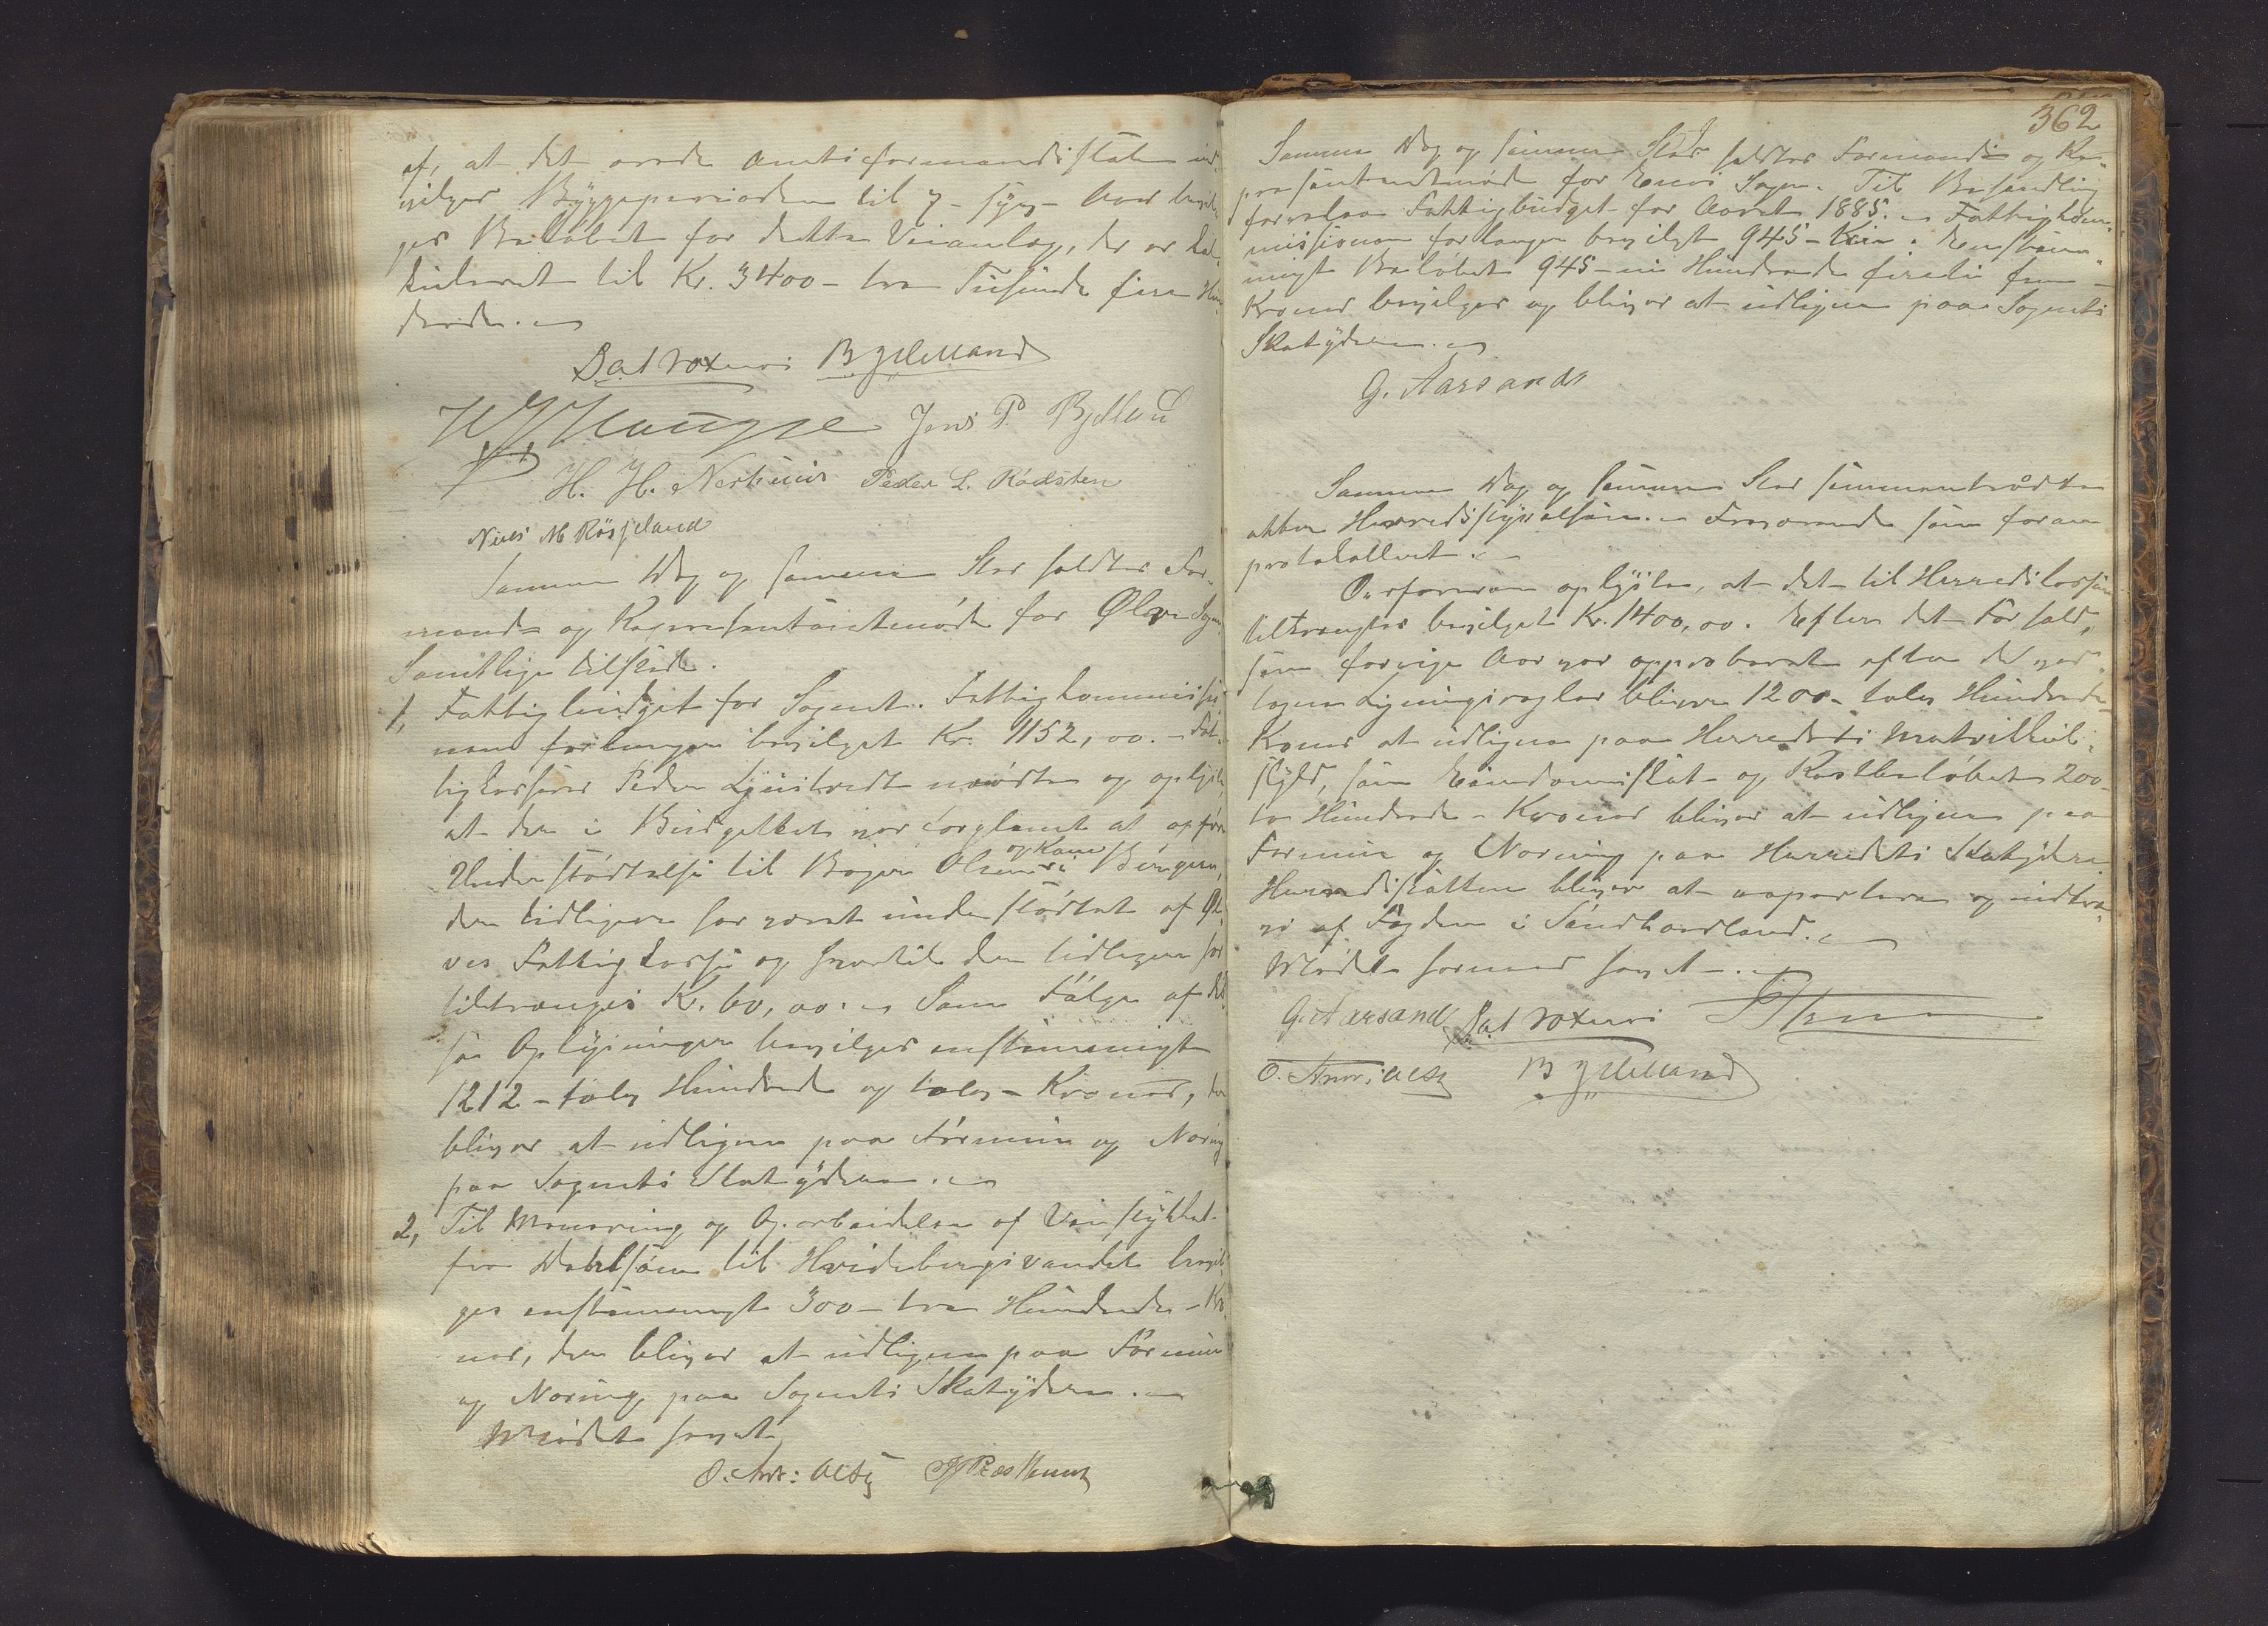 af, at det ærede Amtsformandskab ind-
vilger Byggeperioden til 7 - syv - Aar bevil-
ges Beløbet for dette Veianlæg, der er kal-
kuleret til Kr. 3400 - tre Tusinde fire Hun-
drede.
B Gjelland
Jens P. Bjelland
H. H. Nerhuus Peder L. Rädsten
Nils M Røsseland
Samme Dag og samme Sted holdtes For-
mands og Repræsentantmøde for Ølve Sogn
Samtlige tilstede.
1, Fattigbudget for Sognet. Fattigkommissio-
nen forlanger bevilget Kr. 1152,00. - Fat-
tigkasserer Peder mødte og oplyste
at der i Budgettet var forglemt at opføre
og Kone
Understøttelse til Børge Olsen i Bergen,
der tidligere har været understøttet af Øl-
ves Fattigkasse og hvortil der tidligere har
tiltrænges Kr. 60,00. Som Følge af dis-
se Oplysninger bevilges enstemmigt
1212 - tolv Hundrede og tolv - Kroner, der
bliver at udligne paa Formue og Næring
paa Sognets Skatydere.
2, Til Minering og Oparbeidelse af Veistykket
fra til Hvidebergsvandet bevil-
ges enstemmigt 300 - tre Hundrede - Kro-
ner, der bliver at udligne paa Formue
og Næring paa Sognets Skatydere.
Mødet hævet
362
Samme Dag og samme Sted holdtes Formands og Re-
præsentantmøde for Enæs Sogn. Til Behandling
forelaa Fattigbudget for Aaret 1885. Fattigkom-
missionen forlanger bevilget 945 - Kr. Enstem-
migt Beløbet 945 - ni Hundrede firti fem -
Kroner bevilges og bliver at udligne paa Sognets
Skatydere.
G. Aarsand
Samme Dag og samme Sted sammentraadte
atter Herredsstyrelsen. Fraværende som foran
protokolleret.
Ordføreren oplyste, at det til Herredskassen
tiltrænges bevilget Kr. 1400,00. Efter det Forhold,
som forrige Aar var approberet efter de ved-
tagne Ligningsregler bliver 1200 - tolv Hundrede -
Kroner at udligne paa Herredets Matrikkul-
skyld, som Eiendomsskat og Restbeløbet 200 -
to Hundrede - Kroner bliver at udligne paa
Formue og Næring paa Herredets Skatydere
Herredsskatten bliver at repartere og indkræ-
ves af Fogden i Søndhordland.
Mødet hermed hævet.
G. Aarsand
B Gjelland